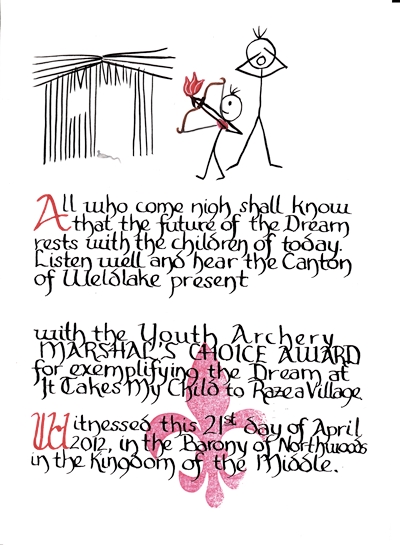 All who come nigh shall know
that the future of the Dream
rests with the children of today.
Listen well and hear the Canton
of Weldlake present
with the Youth Archery
MARSHAL'S CHOICE AWARD
for exemplifying the Dream at
It Takes My Child to Raze a Village
Witnessed this 21st day of April
2012, in the Barony of Northwoods
in the Kingdom of the Middle.